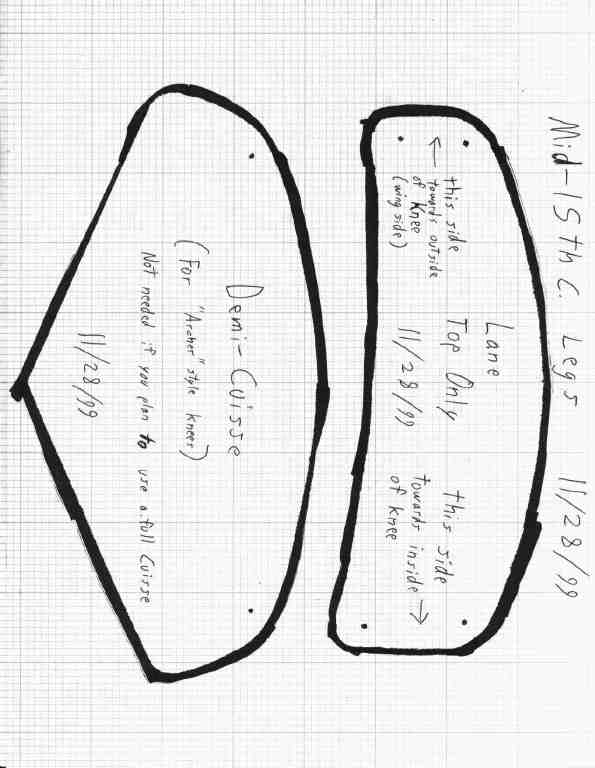 Mid-15th C. Legs 11/28/99
Lane
Top Only
11/28/99
this side
towards outside
of Knee
(wing side)
←
this side
towards inside →
of knee
Demi-Cuisse
(For "Archer" style knees)
Not needed if you plan to use a full Cuisse
11/28/99